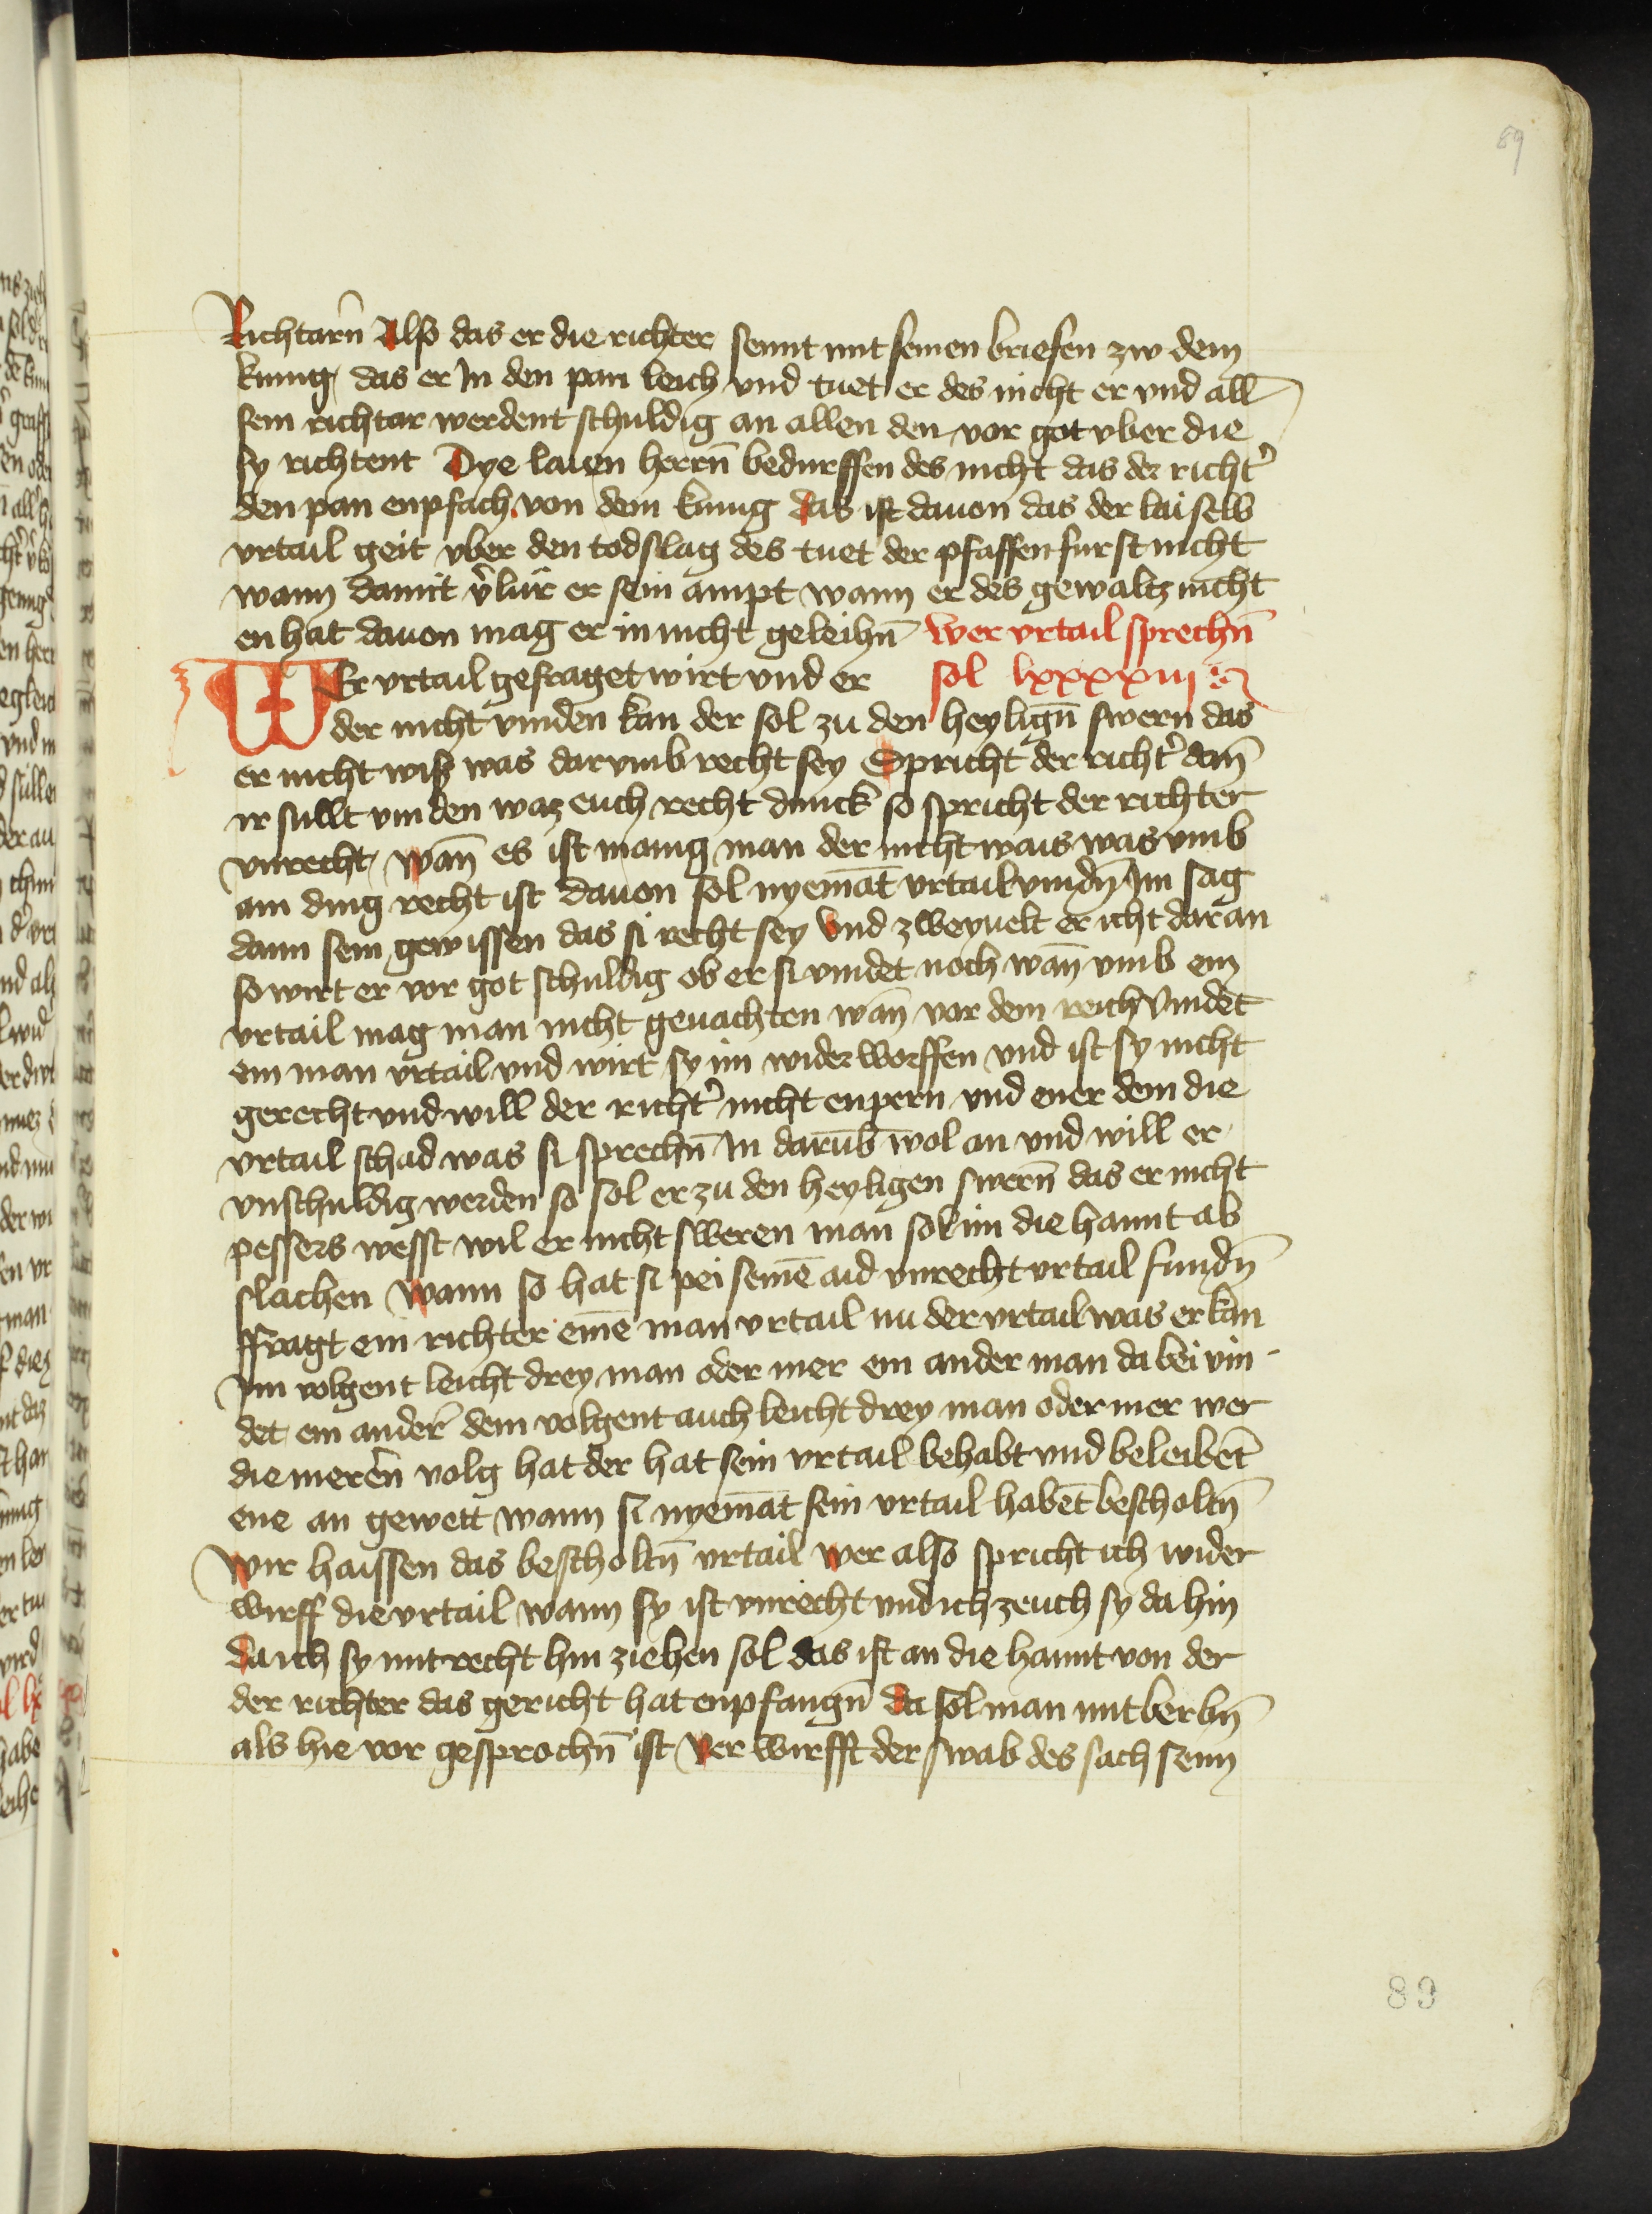 89
Richtarn̄ Also das er die richter sennt mit seinen briefen zw dem
kunig das er In den pan leich vnd tuet er des nicht er vnd all
sein richtar werdent schuldig an allen den vor got vber die
sy richtent Dye laien herrn̄ bedurffen des nicht das der richt͛
den pan enpfach von dem kunig das ist dauon das der lai selb
vrtail geit vber den todslag des tuet der pfaffen furst nicht
wann damit v͛lur er sein ampt wann er des gewaltz nicht
en hat dauon mag er in nicht geleihn̄ Wer vrtail sprechn̄
WEr vrtail gefraget wirt vnd er sol lxxxxiij
der nicht vinden kan der sol zu den heylign̄ swern das
er nicht wiß was darvmb recht sey Spricht der richt͛ dan̄
ir sullt vinden waz euch recht dunck so spricht der richter
vnrecht wan̄ es ist manig man der nicht wais was vmb
ain ding recht ist dauon sol nyema̅t vrtail vindn̄ Im sag
dann sein gewissen das si recht sey Vnd zweyuelt er icht daran
so wirt er vor got schuldig ob er si vindet noch wan̄ vmb ein
vrtail mag man nicht geuachten wan̄ vor dem reich Vindet
ein man vrtail vnd wirt sy im widerworffen vnd ist sy nicht
gerecht vnd will der richt͛ nicht enpern vnd ener dem die
vrtail schad was si sprechn̄ In daru̅b wol an vnd will er
vnschuldig werden so sol er zu den heyligen swern̄ das er nicht
pessers wesst wil er nicht sweren man sol im die hannt ab
slachen Wann so hat si pei seine̅ aid vnrecht vrtail fundn̄
ffragt ein richter eine̅ man vrtail nu der vrtail was er kan
Im volgent leicht drey man oder mer ein ander man da bei vin-
det ein ander͛ dem volgent auch leicht drey man oder mer wer
die meren̄ volg hat der hat sein vrtail behabt vnd beleibe̅t
ene an gewett wann si nyema̅t sein vrtail habe̅t bescholtn̄
Wir haissen das bescholtn̄ vrtail wer also spricht ich wider
wirff die vrtail wann sy ist vnrecht vnd ich zeuch sy da hin
da ich sy mit recht hin ziehen sol das ist an die hannt von der
der richter das gericht hat enpfangn̄ da sol man mit berbn̄
als hie vor gesprochn̄ ist Verwirfft der swab des sachsenn
89